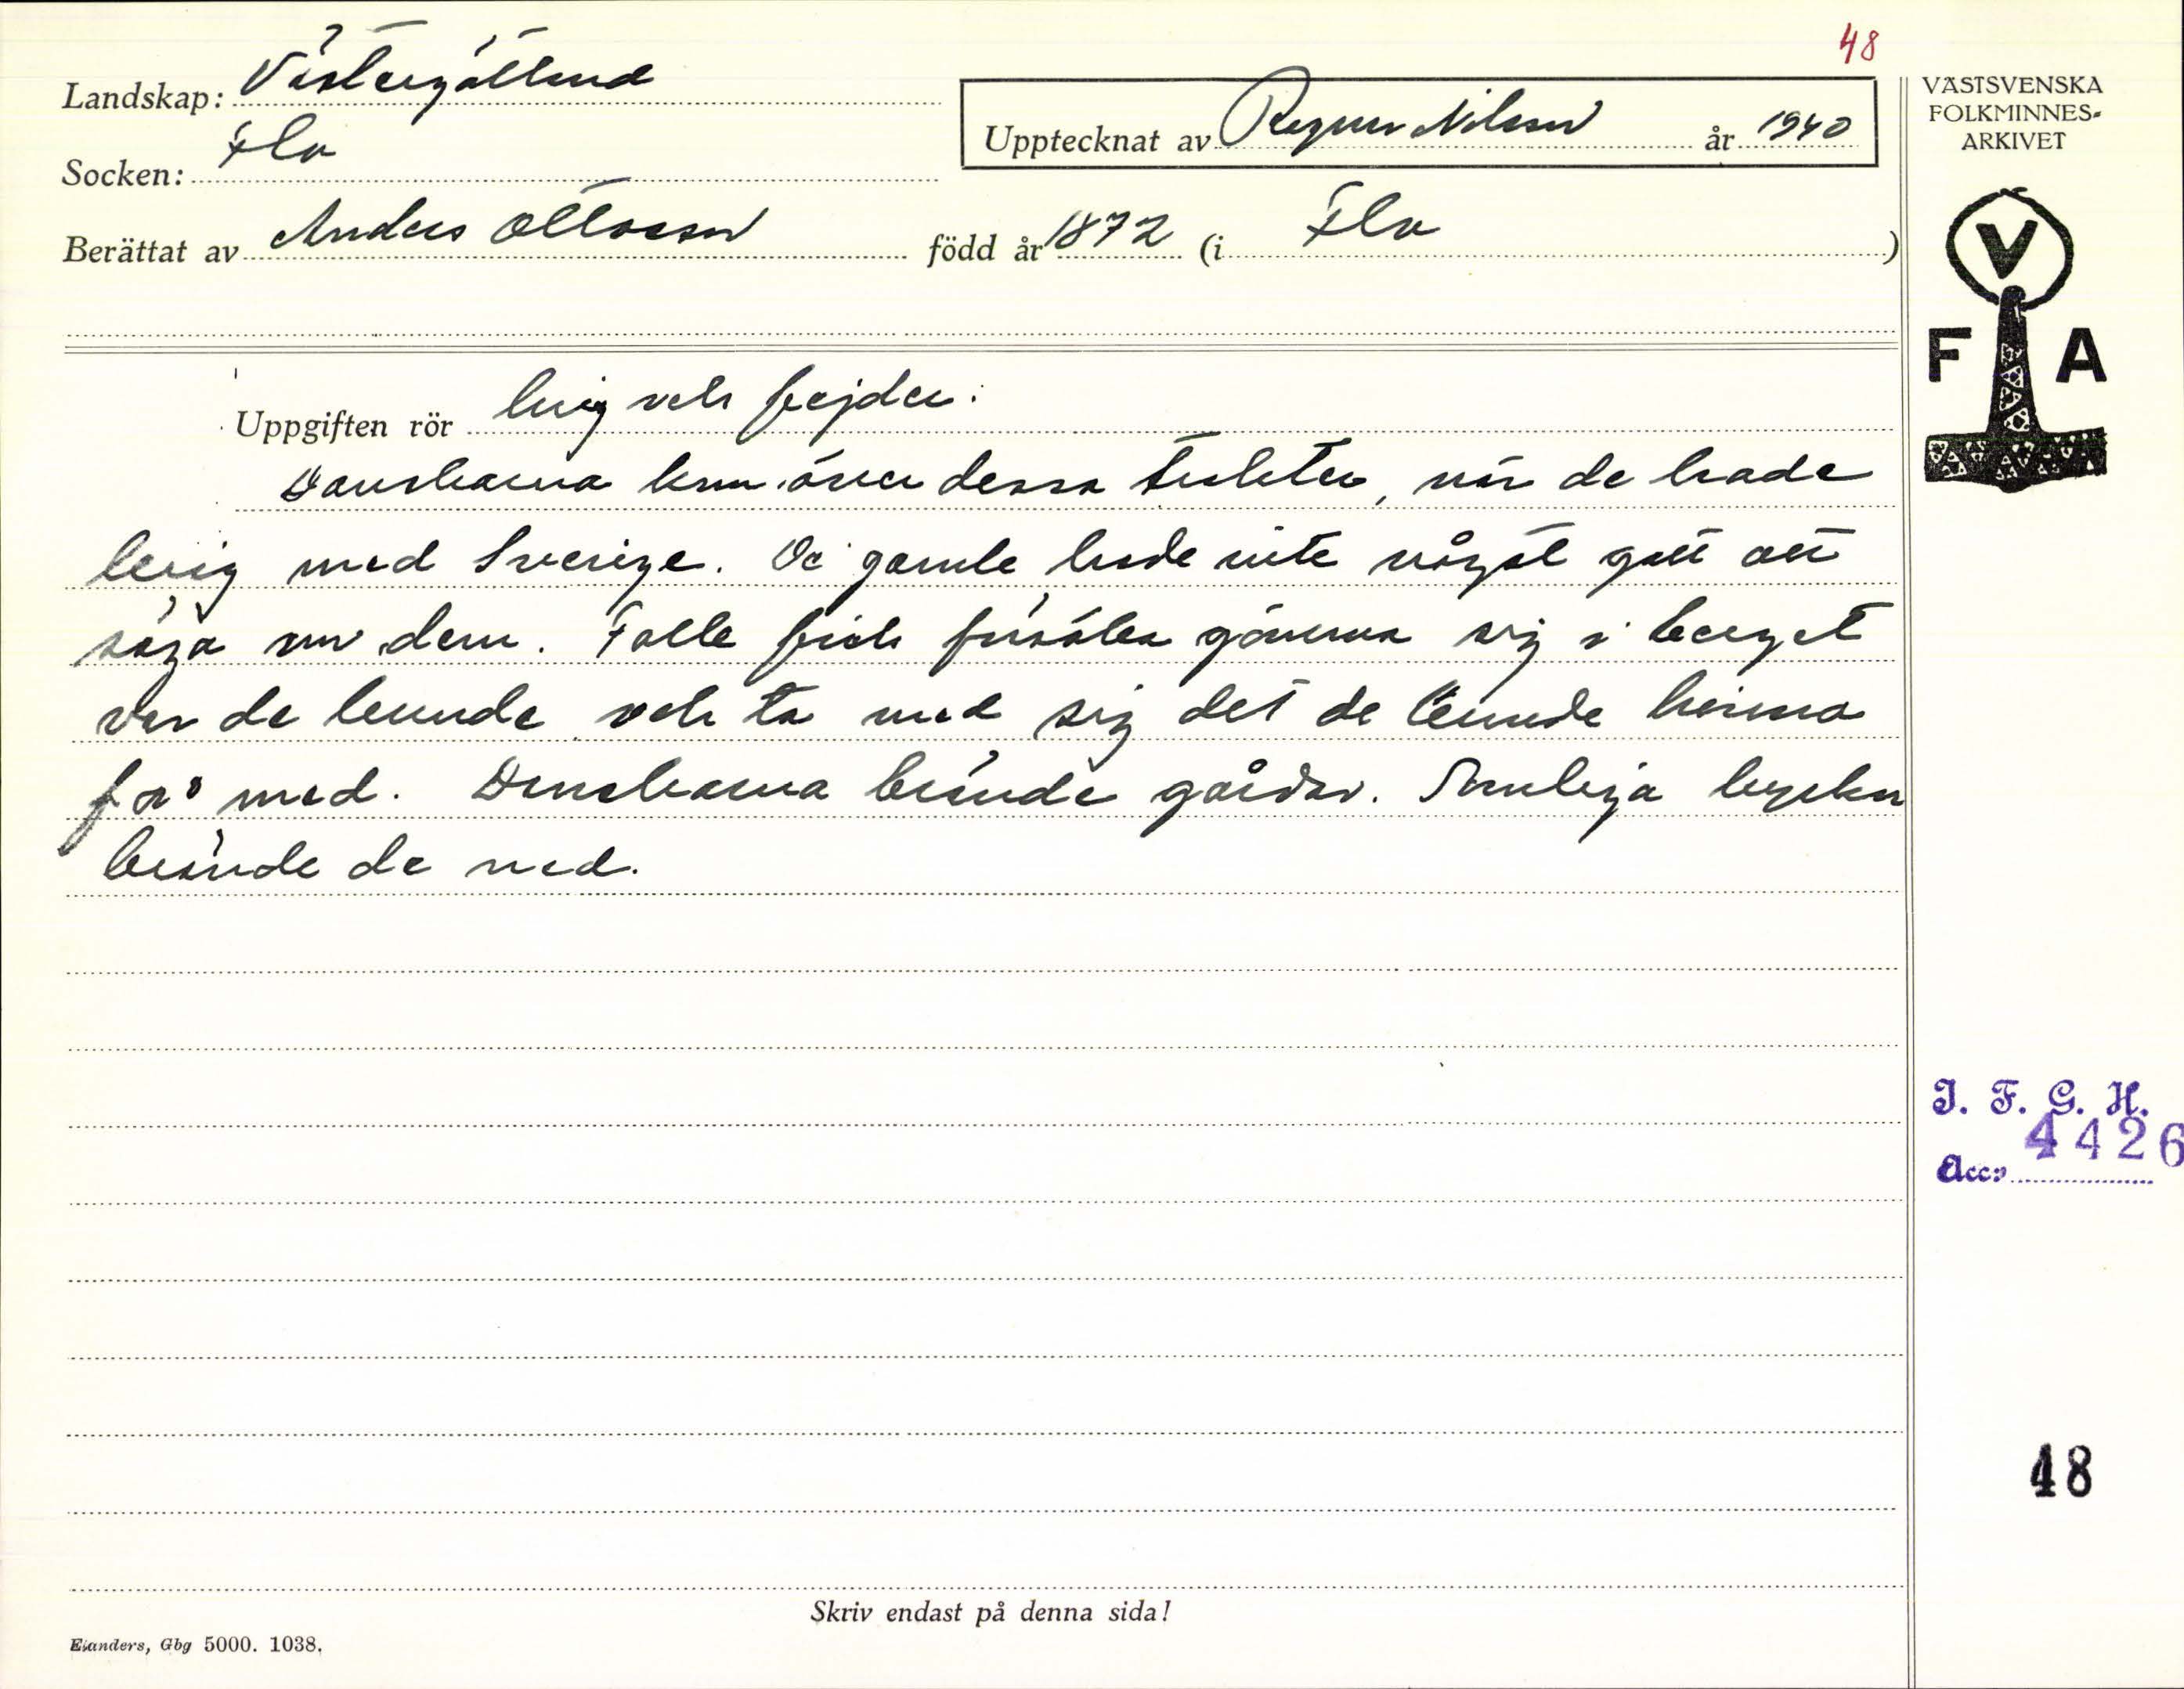 48
Landskap: Västergötland
Socken: Flo
Upptecknat av Ragnar Nilsson år 1940
Berättat av Anders Ottosson född år 1872 (i Flo)
VÄSTSVENSKA
FOLKMINNES-
ARKIVET
V
F A
Uppgiften rör krig och fejder.
Danskarna kom över dessa trakter, när de hade
krig med Sverige. De gamle hade inte något gott att
säga om dem. Folk fick försöka gömma sig i berget
var de kunde och ta med sig det de kunde hinna
få med. Danskarna brände gårdar. Somliga kyrkor
brände de ned.
I. F. G. H.
Acc: 4426
48
Skriv endast på denna sida!
Elanders, Gbg 5000. 1038.